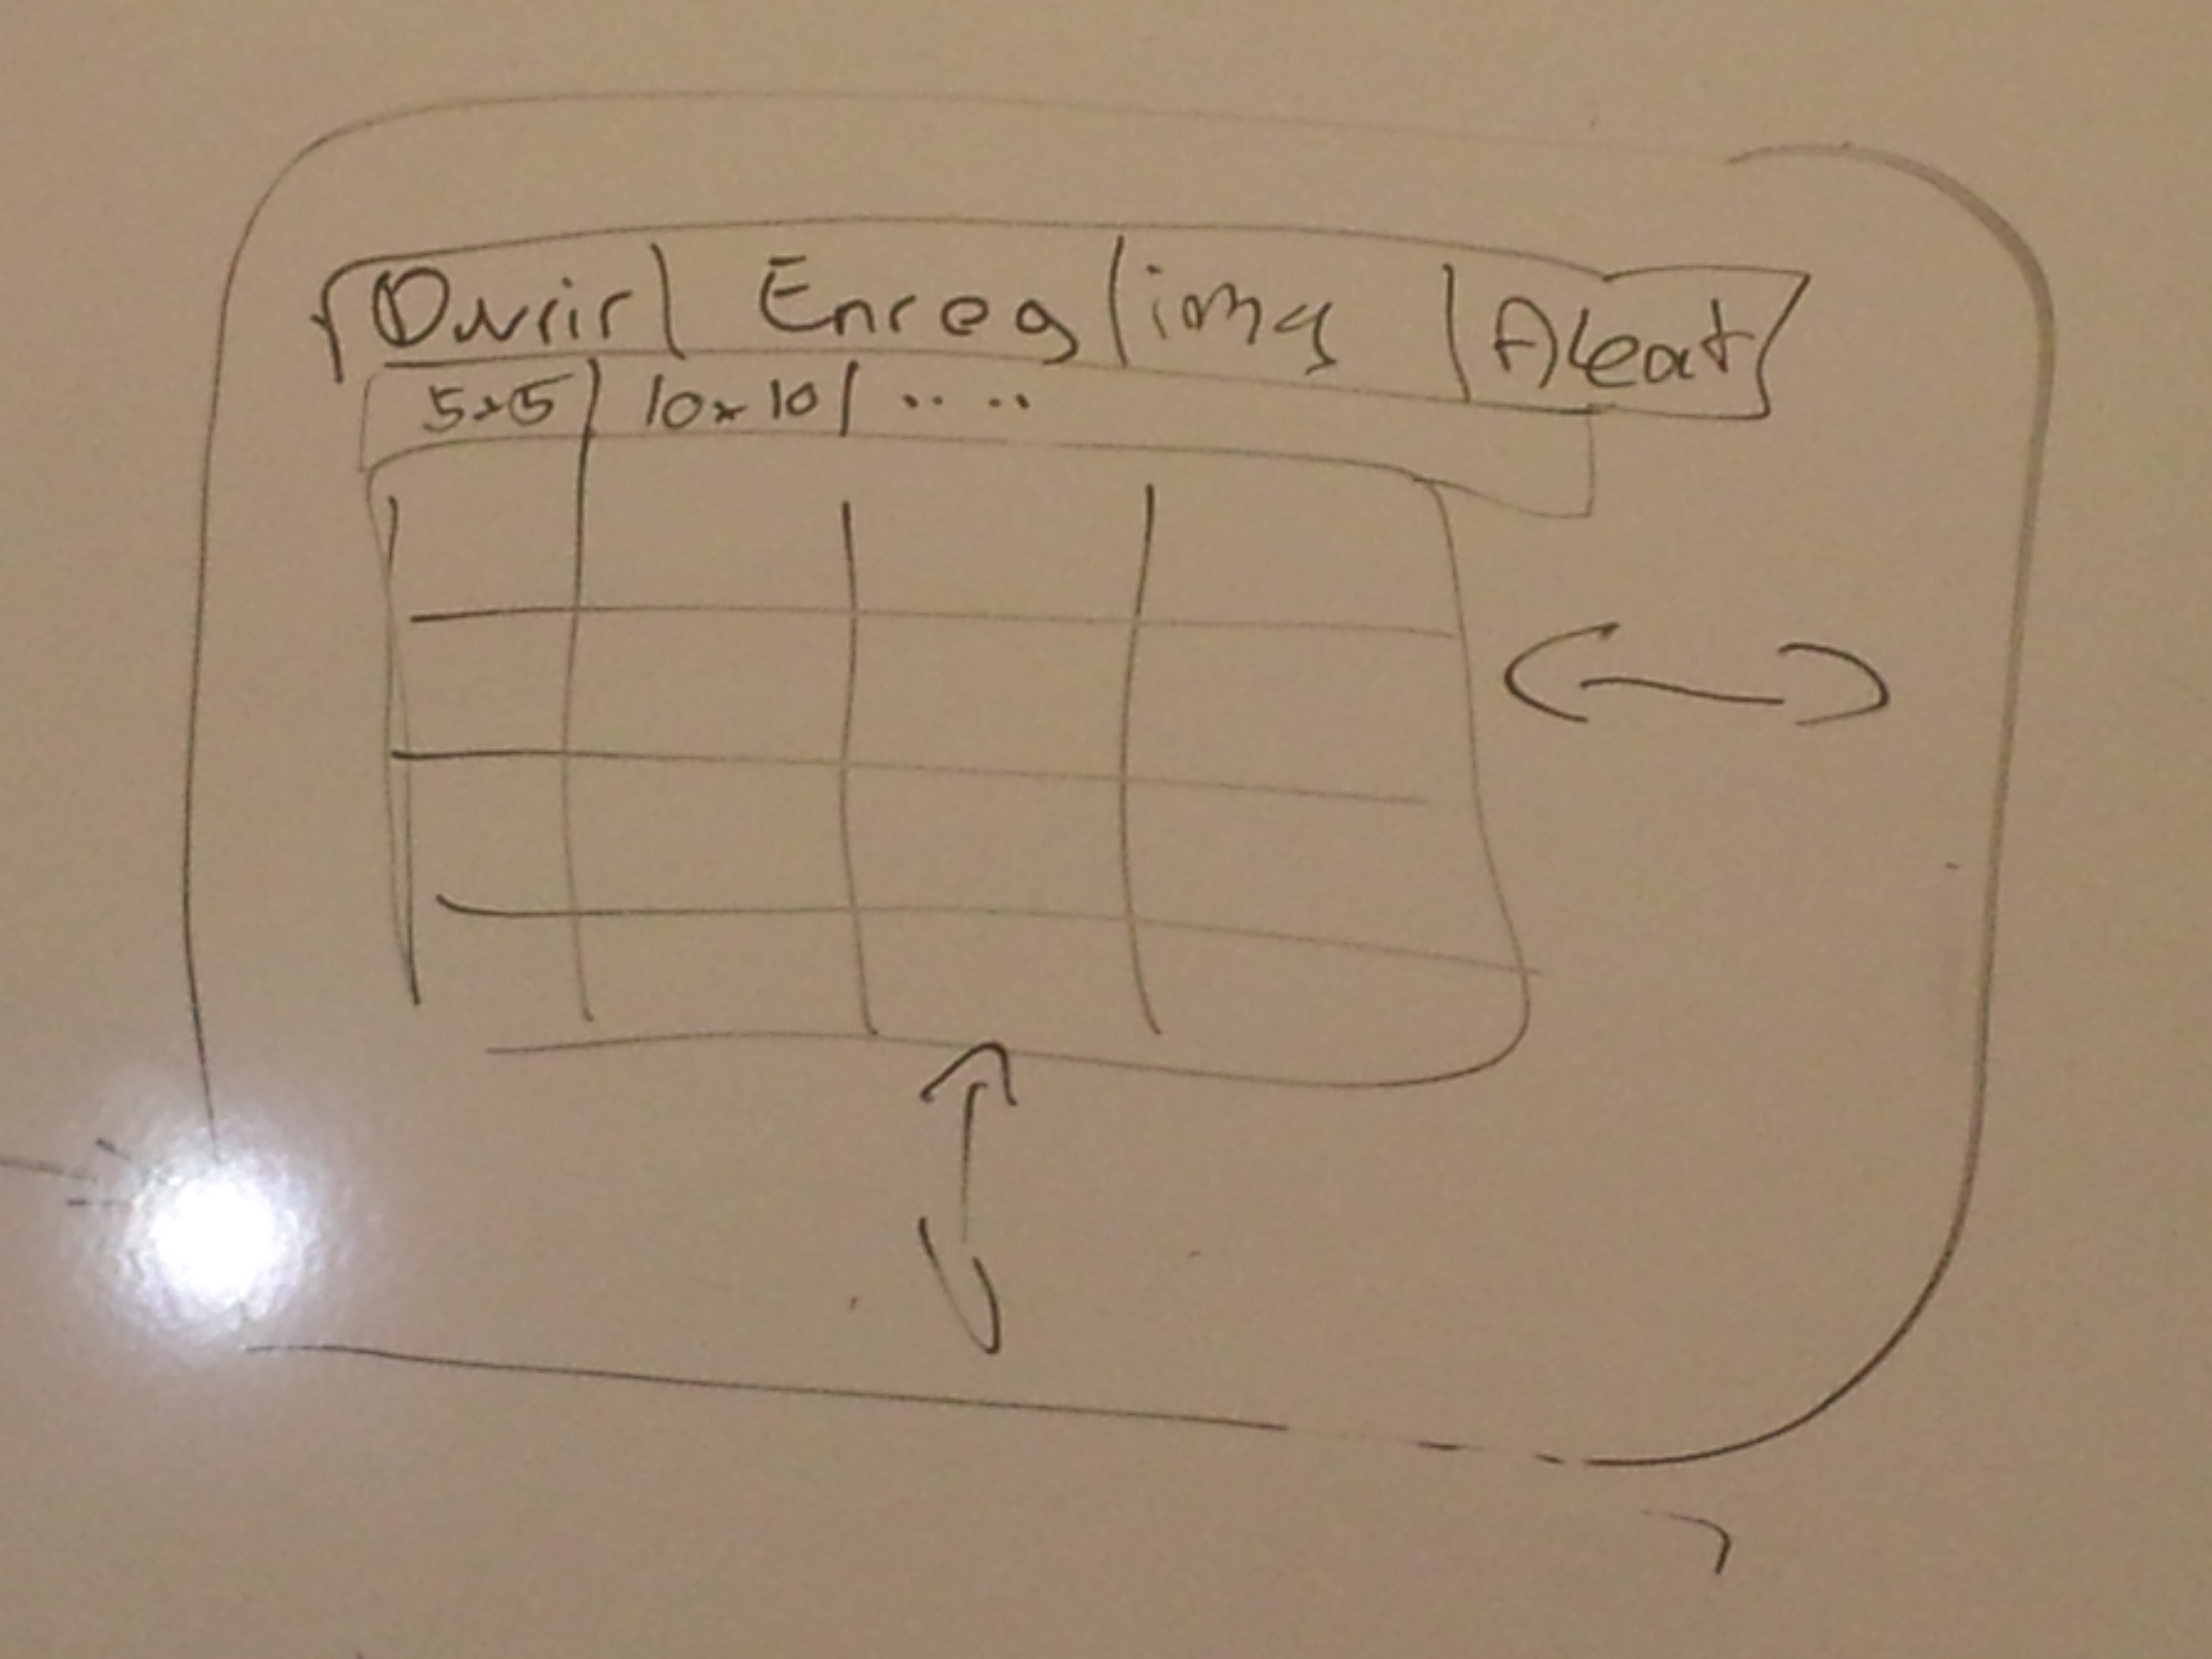 Ouvrir Enreg img Aleat
5x5 10x10 .. ..